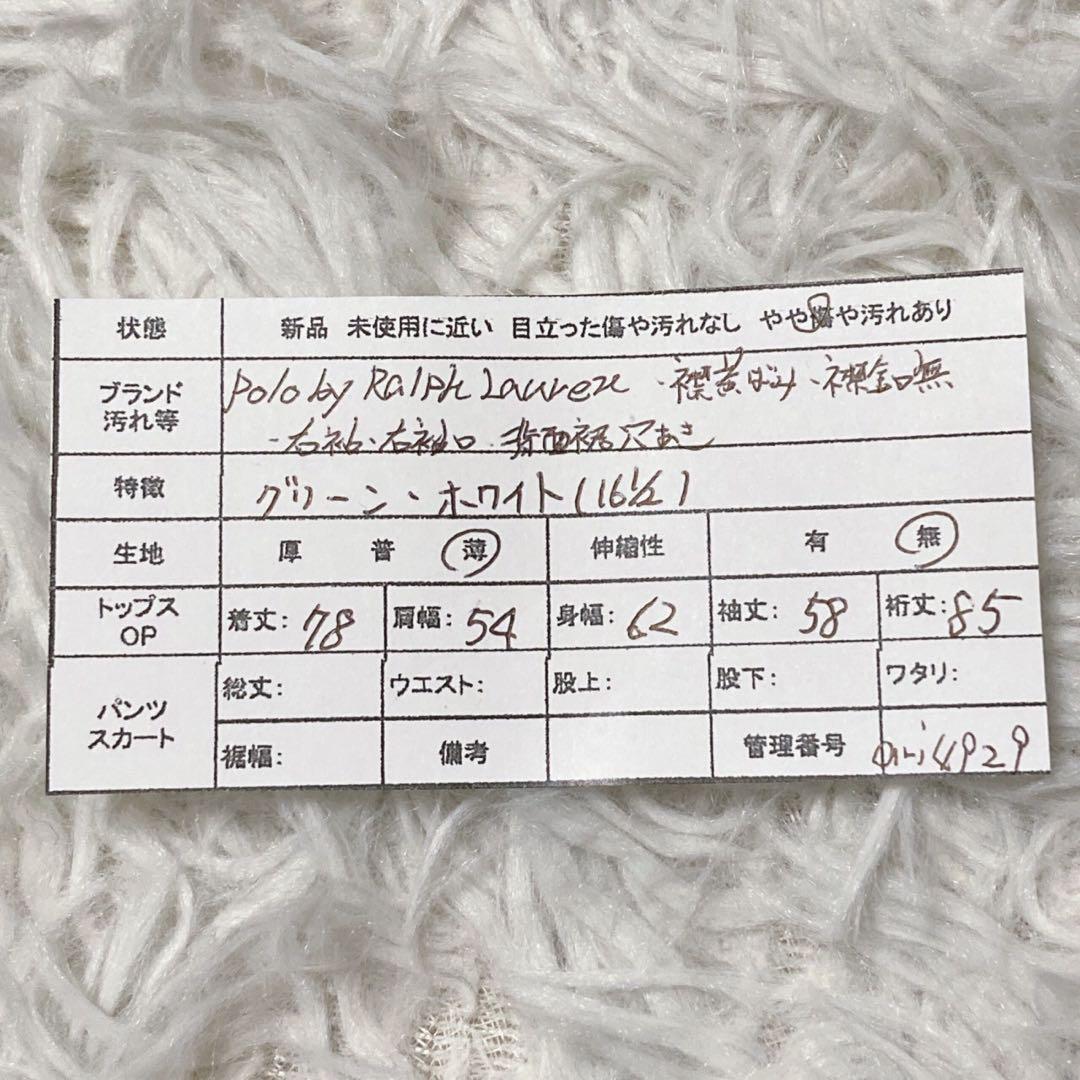 状態 新品 未使用に近い 目立った傷や汚れなし やや傷や汚れあり
ブランド 汚れ等 Polo by Ralph Lauren ・襟黄ばみ・襟釦無
・右袖・右袖口・背面裾穴あき
特徴 グリーン・ホワイト(16 1/2)
生地 厚 普 薄 伸縮性 有 無
トップス OP 着丈:78 肩幅:54 身幅:62 袖丈:58 裄丈:85
パンツ スカート 総丈: ウエスト: 股上: 股下: ワタリ:
裾幅: 備考 管理番号 4929